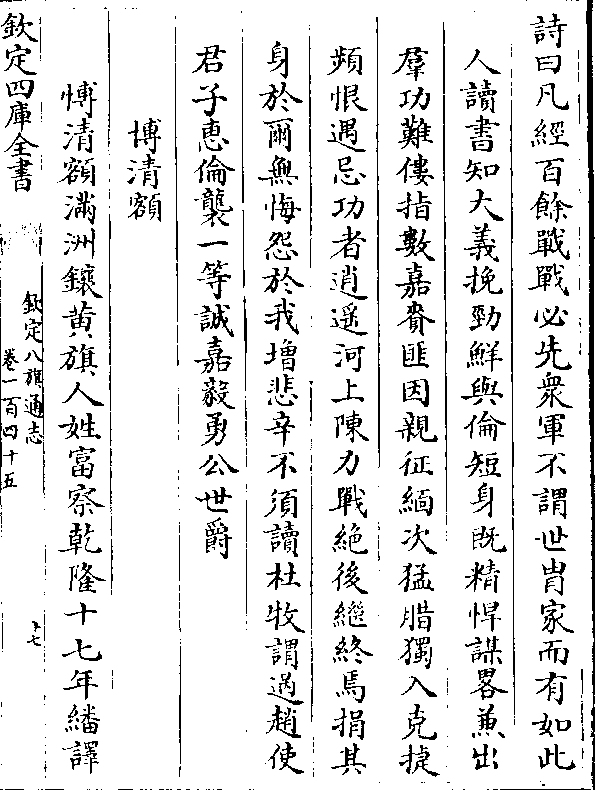 詩曰凡經百餘戰戰必先衆軍不謂世胄家而有如此
人讀書知大義挽勁鮮與倫短身既精悍謀畧兼出
羣功難僂指數嘉賚匪因親征緬次猛腊獨入克捷
頻恨遇忌功者逍遥河上陳力戰絶後繼終焉捐其
身於爾無悔怨於我增悲辛不須讀杜牧謂過趙使
君子惠倫襲一等誠嘉毅勇公世爵
博清額
愽清額滿洲鑲黄旗人姓富察乾隆十七年繙譯
欽定四庫全書
欽定八旗通志
卷一百四十五
十七